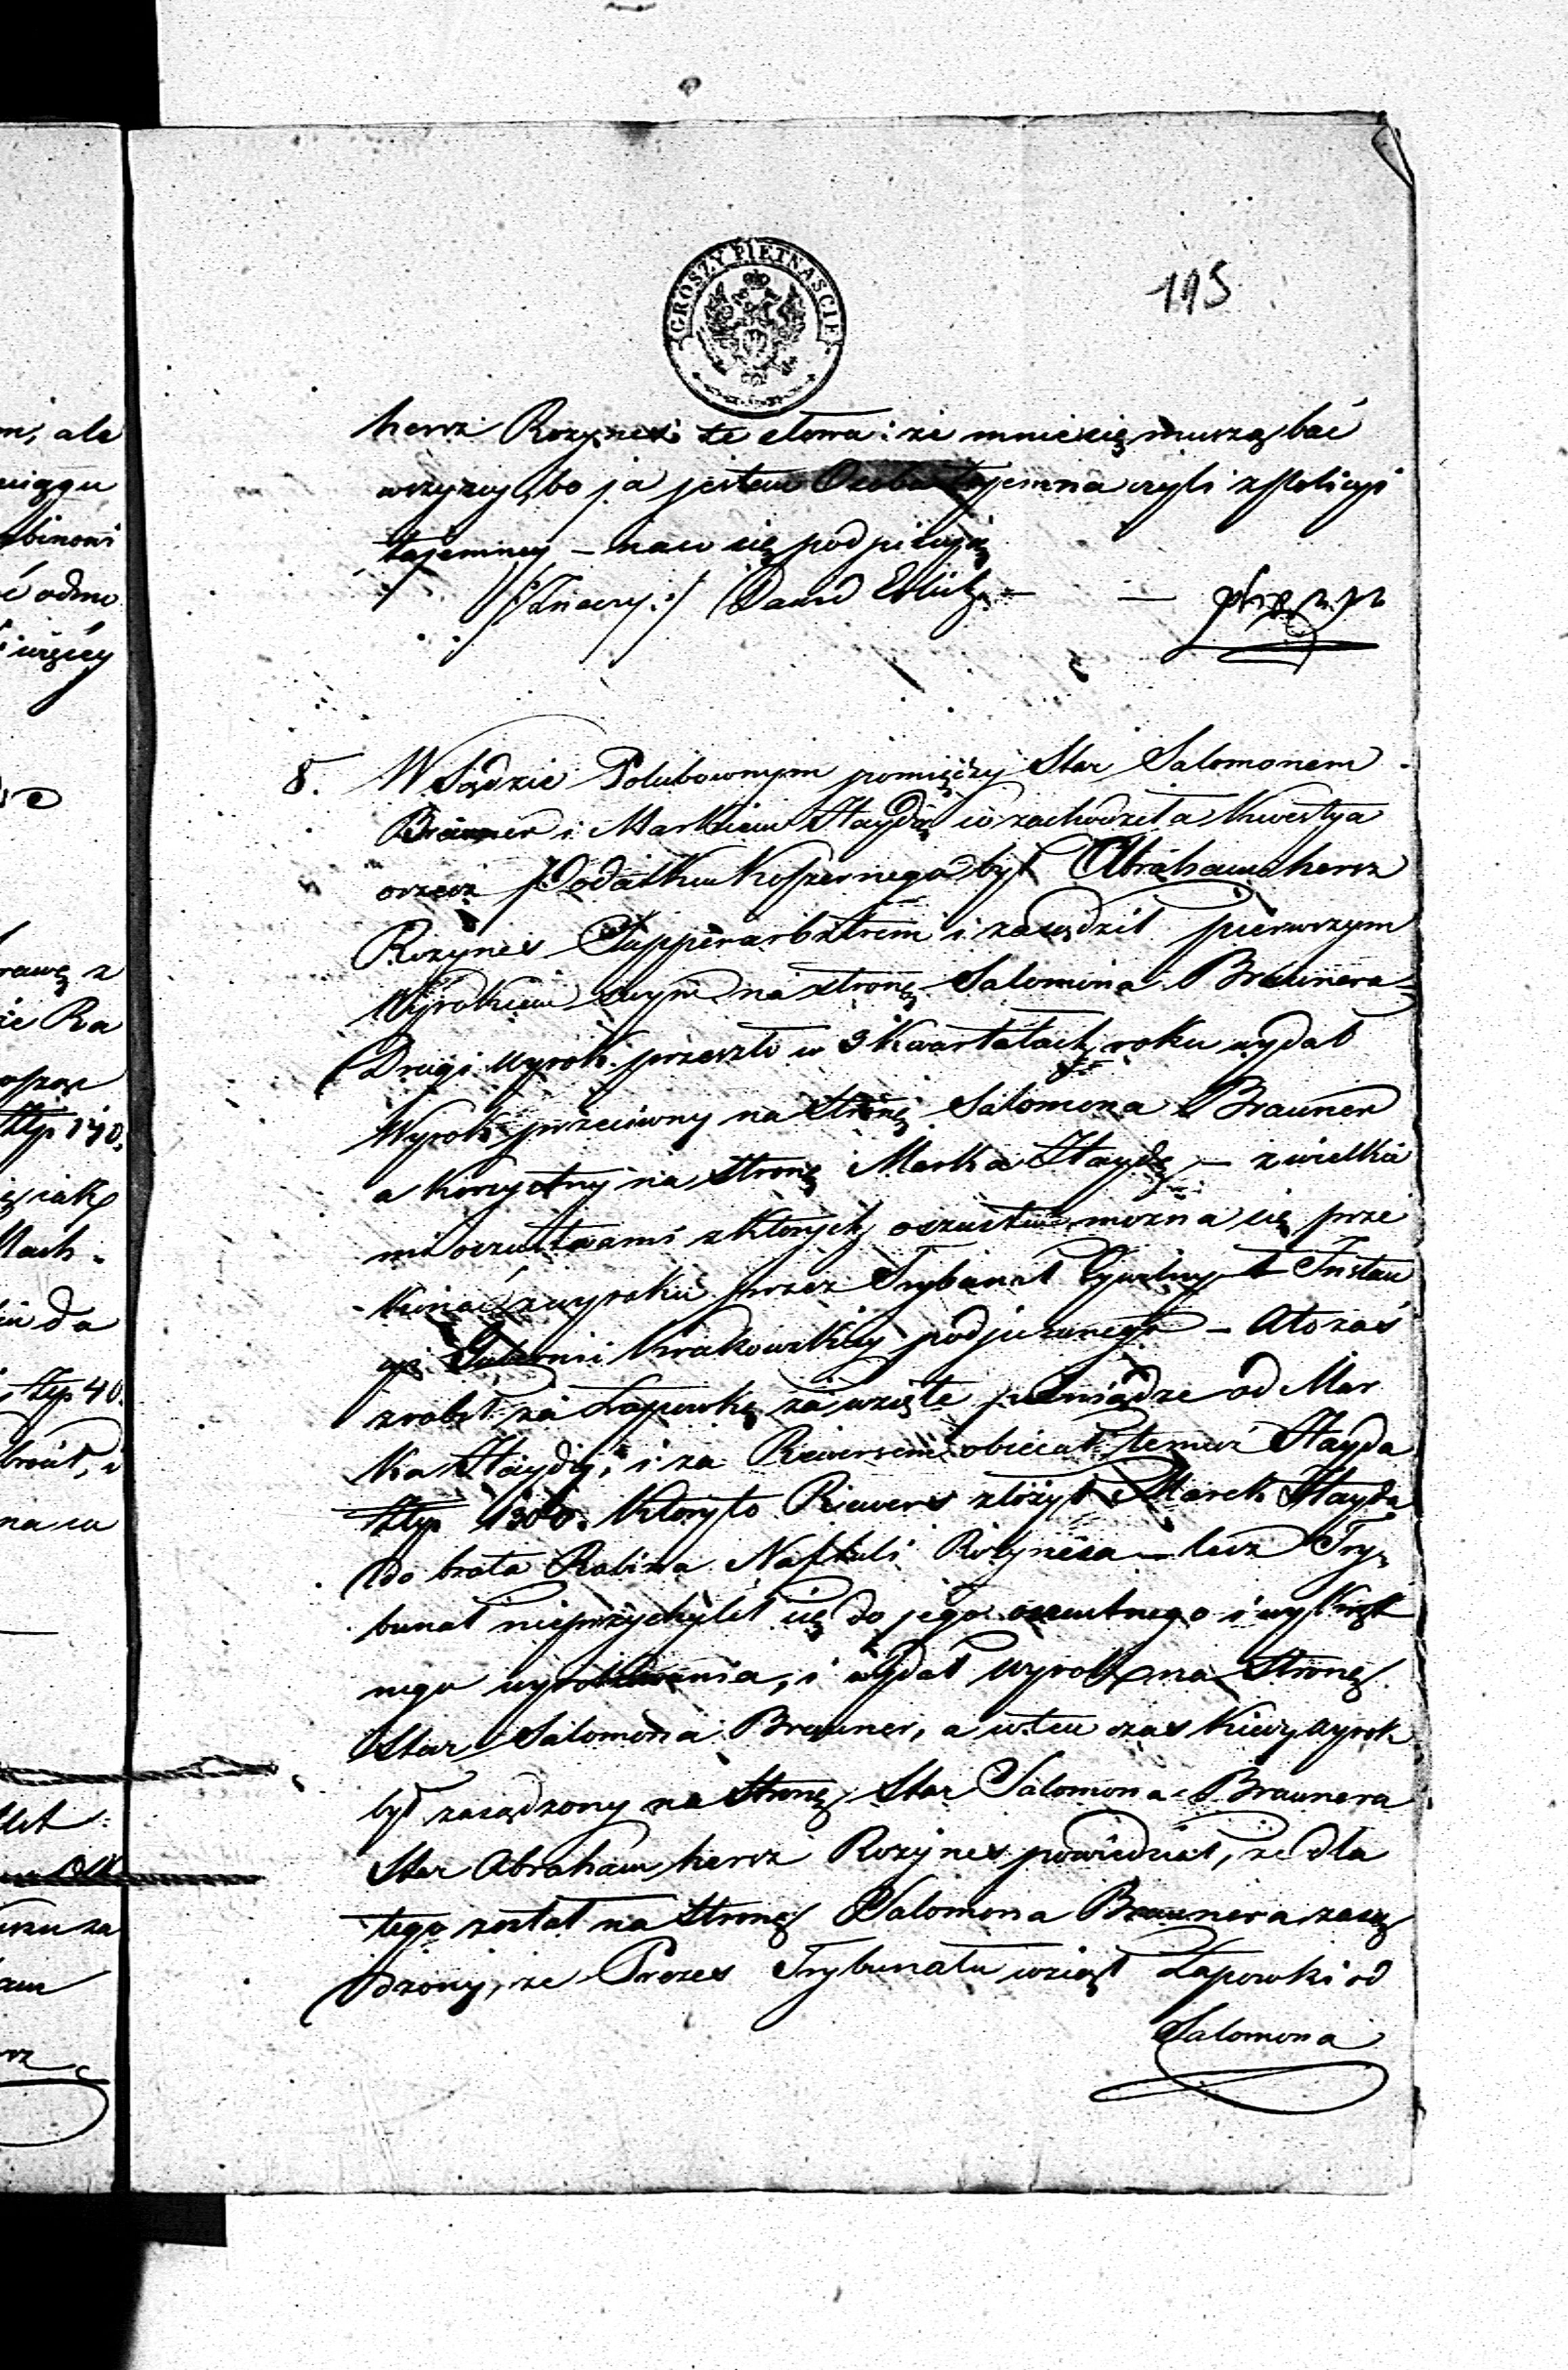 GROSZY PIĘTNAŚCIE
115
hersz Rozynes te słowa: że mnie się muszą bać
wszyscy, bo ja jestem Osoba tajemna czyli z Policyi
tajemney – na co się podpisuję
/:Znaczy:/ Dawid Erlich – –
8. W Sądzie Polubownym pomiędzy Star Salomonem
Brauner i Markiem Hayda co zachodziła Kwestya
orzecz Podatku Koszernego był Abraham hersz
Rozynes Supperarbitrem i zasądził pierwszym
Wyrokiem swym na stronę Salomona Braunera
Drugi wyrok przeszło w 3 Kwartałach roku wydał
Wyrok przeciwny na Stronę Salomona Brauner
a korzystny na Stronę Marka Haydy – z wielkie
mi oszustwami z których oszustw można się prze
konać z wyroku przez Trybunał Cywilny 1 Instan
cyi Gubernii Krakowskiey podpisanego – A to zaś
zrobił za Łapówkę za wzięte pieniądze od Mar
ka Haydy, i za Rewersem obiecał temuż Hayda
Złp 1300. Który to Rewers złożył Marek Hayda
do brata Rabina Naftuli Rozynesa – lecz Try-
bunał nieprzychylił się do jego oszustnego i wykręt
nego wyrokowania, i wydał wyrok na Stronę
Star Salomona Brauner, a w ten czas kiedy wyrok
był zasądzony na Stronę Star Salomona Braunera
Star Abraham hersz Rozynes powiedział, że dla
tego został na Stronę Salomona Braunera zasą
dzony, że Prezes Trybunału wziął Łapówki od
Salomona